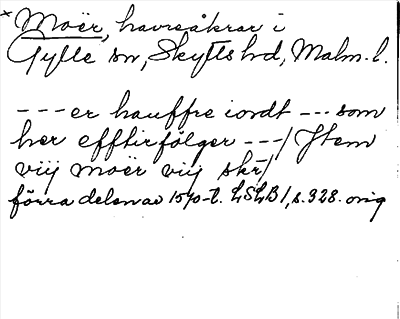 * Moër, havreåkrar i
Gylle sn, Skytts hd, Malm. l.
--- er hauffre iordt --- som
her efftirfölger ---/ Jtem
viij moër viij skr/
förra delen av 1570-t. LSLB 1, s. 328. orig